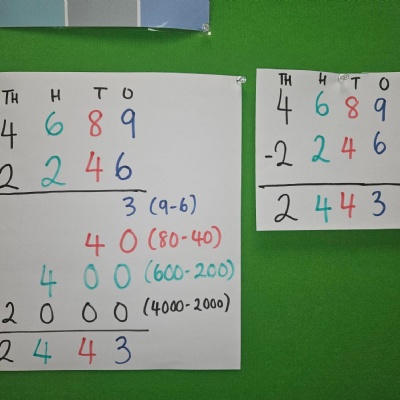 TH H T O
4 6 8 9
2 2 4 6
3 (9-6)
4 0 (80-40)
4 0 0 (600-200)
2 0 0 0 (4000-2000)
2 4 4 3
TH H T O
4 6 8 9
-2 2 4 6
2 4 4 3